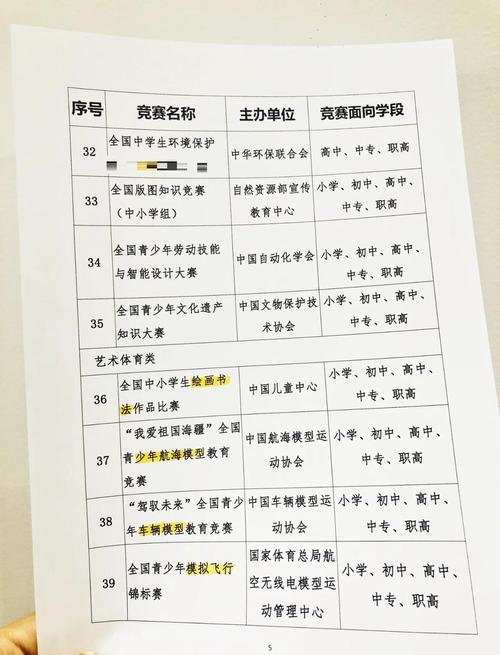 序号 竞赛名称 主办单位 竞赛面向学段
32 全国中学生环境保护 中华环保联合会 高中、中专、职高
33 全国版图知识竞赛 自然资源部宣传 小学、初中、高中、
（中小学组） 教育中心 中专、职高
34 全国青少年劳动技能 中国自动化学会 小学、初中、高中、
与智能设计大赛 中专、职高
35 全国青少年文化遗产 中国文物保护技 小学、初中、高中、
知识大赛 术协会 中专、职高
艺术体育类
36 全国中小学生绘画书 中国儿童中心 小学、初中、高中、
法作品比赛 中专、职高
37 “我爱祖国海疆”全国 中国航海模型运 小学、初中、高中、
青少年航海模型教育 动协会 中专、职高
竞赛
38 “驾驭未来”全国青少 中国车辆模型运 小学、初中、高中、
年车辆模型教育竞赛 动协会 中专、职高
39 全国青少年模拟飞行 国家体育总局航 小学、初中、高中、
锦标赛 空无线电模型运 中专、职高
动管理中心
5